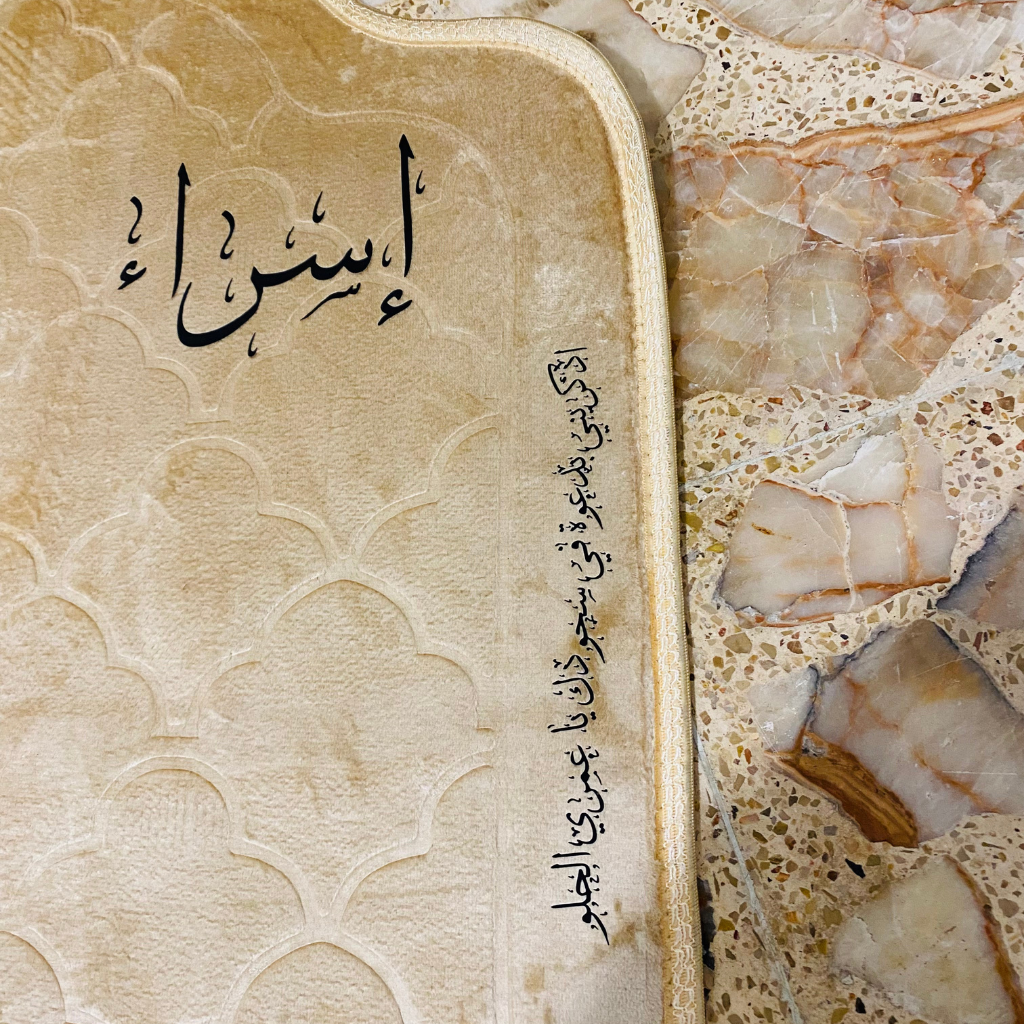 إسراء
اذكريني بدعوة في سجودك يا عمري الحلو